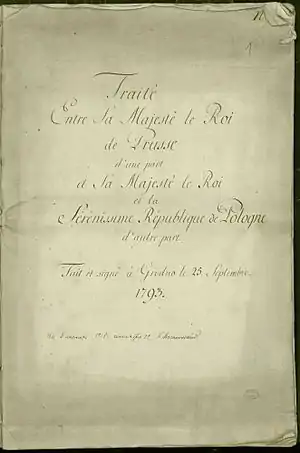 1
Traité
Entre Sa Majesté le Roi
de Prusse
d'une part
et Sa Majesté le Roi
et la
Sérénissime République de Pologne
d'autre part.
Fait et signé à Grodno le 25 Septembre
1793.